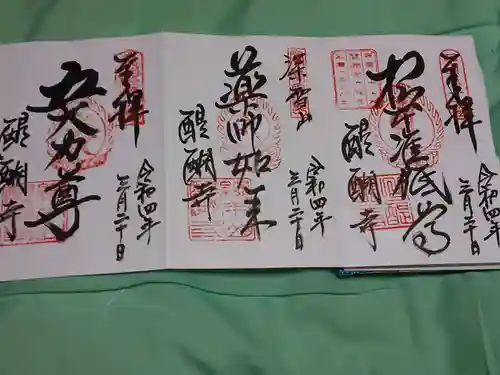 奉拝
准胝堂
醍醐寺
令和四年
三月二十日
深雪山
薬師如来
醍醐寺
令和四年
三月二十日
奉拝
五大力尊
醍醐寺
令和四年
三月二十日